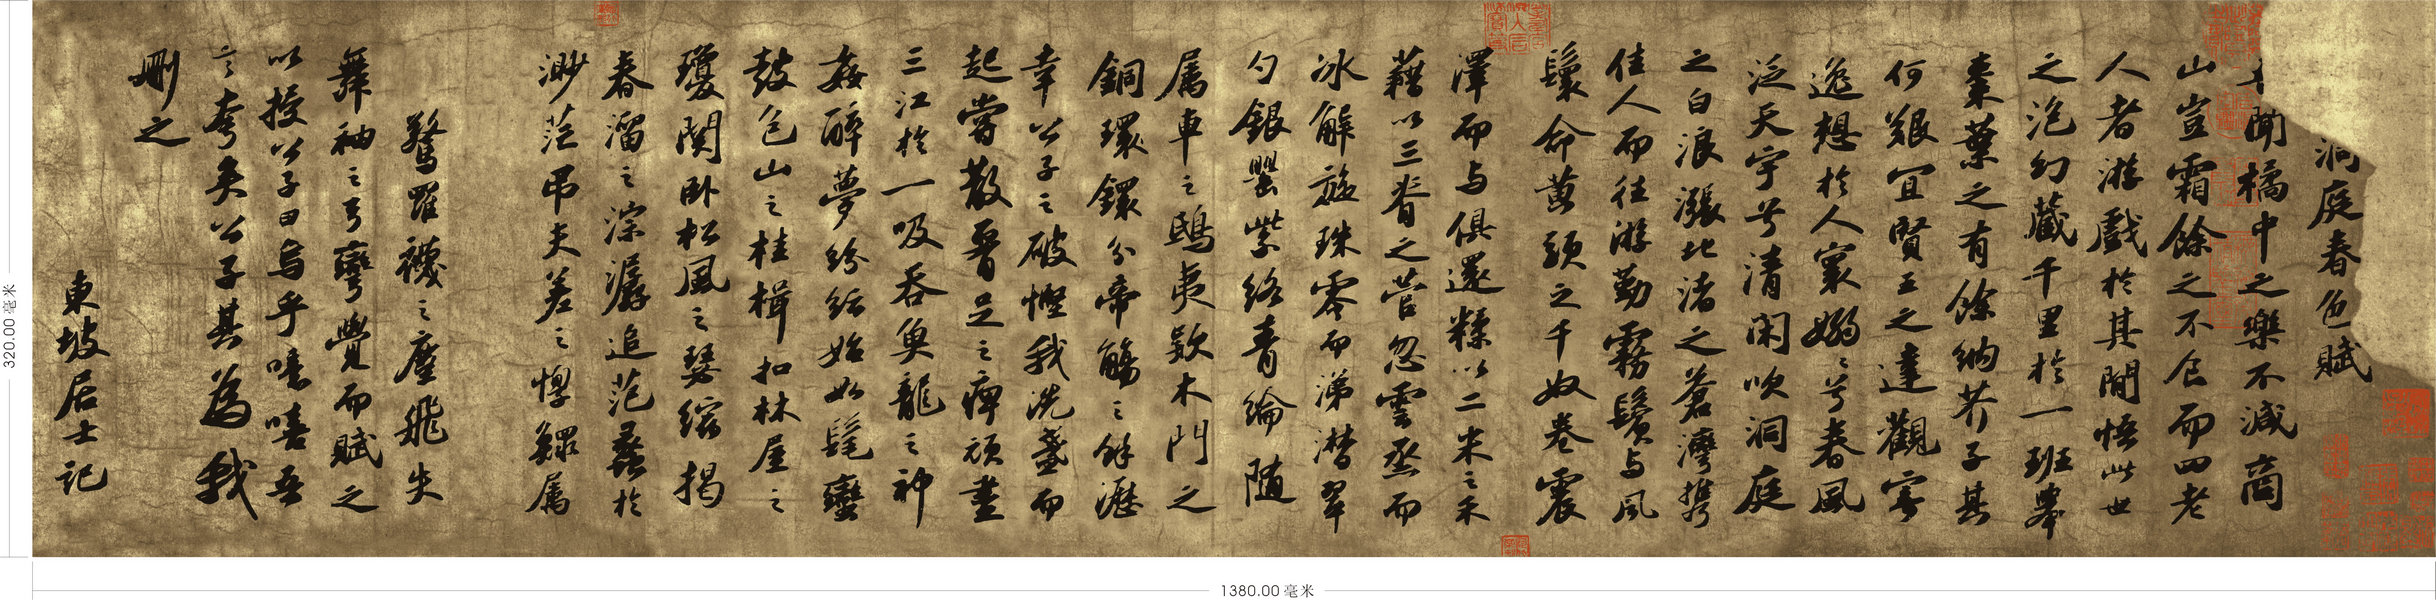 洞庭春色賦
聞橘中之樂不減商
山豈霜餘之不食而四老
人者游戲於其間悟此世
之泡幻藏千里於一班舉
棗葉之有餘納芥子其
何艱宜賢王之達觀寄
逸想於人寰嫋〻兮春風
泛天宇兮清閑吹洞庭
之白浪漲北渚之蒼灣携
佳人而往游勤霧鬢与風
鬟命黃頭之千奴卷震
澤而与俱還糅以二米之禾
藉以三脊之菅忽雲烝而
冰解旋珠零而涕潸翠
勺銀罌紫絡青綸隨
属車之鴟夷款木門之
銅環鐶分帝觴之餘瀝
幸公子之破慳我洗盞而
起嘗散腰足之痺頑盡
三江於一吸吞魚龍之神
姦醉夢紛紜始如髦蠻
鼓包山之桂楫扣林屋之
瓊關卧松風之瑟縮揭
春溜之淙潺追范蠡於
渺茫吊夫差之惸鰥属
驚羅襪之塵飛失
舞袖之弓彎覺而賦之
以授公子曰烏乎噫嘻吾
言夸矣公子其為我
刪之
東坡居士記
320.00 毫米
1380.00 毫米